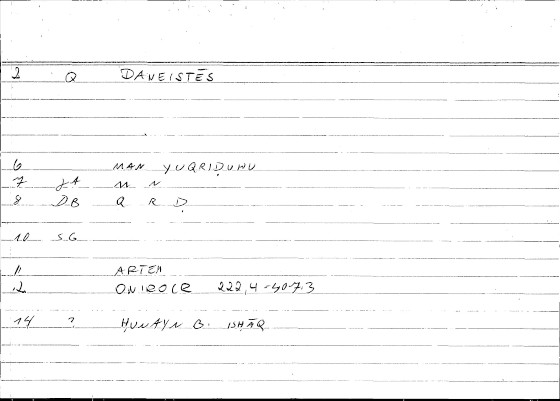 2 Q DANEISTĒS
6 MAN YUQRIḌUHU
7 JA M N
8 DB Q R Ḍ
10 SG
11 ARTEM
12 ONIROCR 222,4-407.3
14 ? ḤUNAYN B. ISḤĀQ